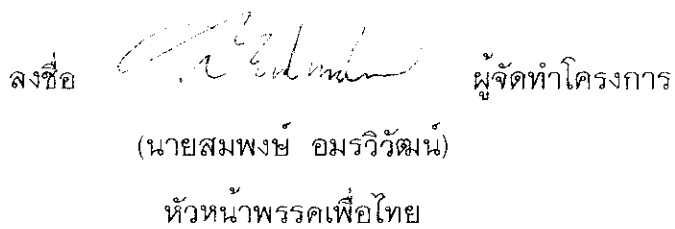 ลงชื่อ ผู้จัดทำโครงการ
(นายสมพงษ์ อมรวิวัฒน์)
หัวหน้าพรรคเพื่อไทย